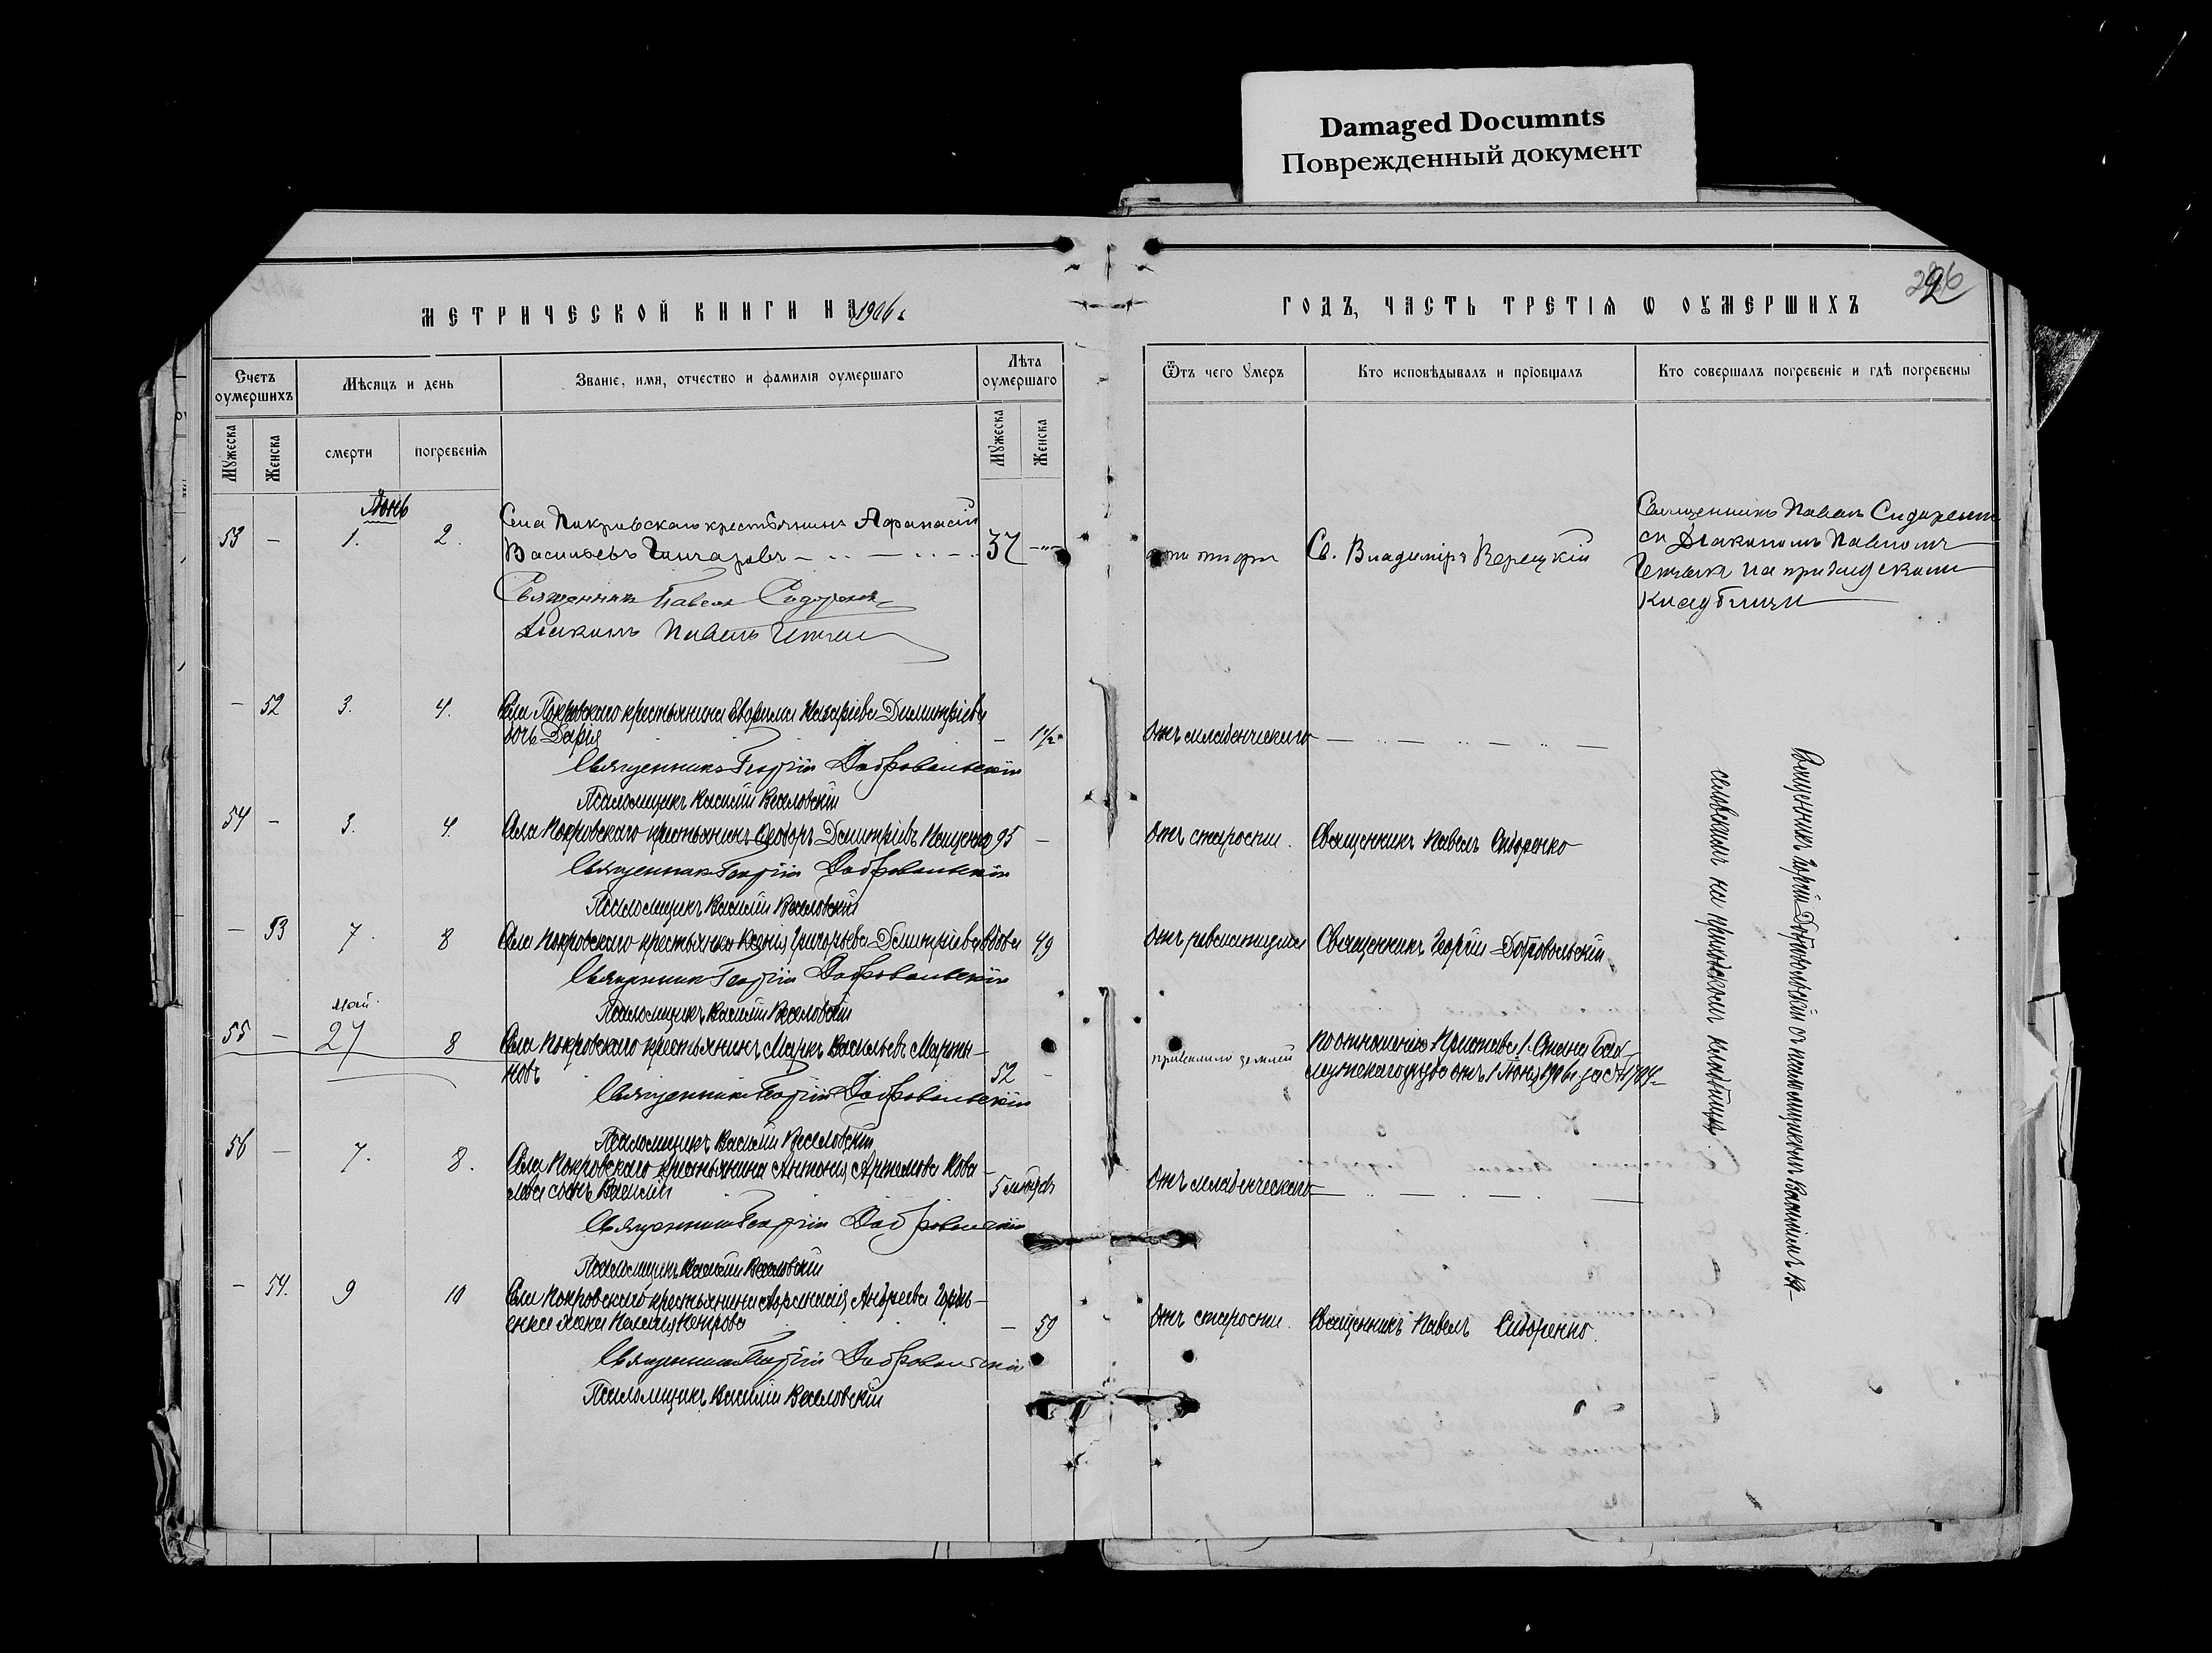 Damaged Documnts
Поврежденный документ
МЕТРИЧЕСКОЙ КНИГИ НА 1906 г.
ГОДЪ, ЧАСТЬ ТРЕТІЯ Ѡ ОУМЕРШИХЪ
Счетъ оумершихъ
Мѣсяцъ и день
Званіе, имя, отчество и фамилія оумершаго
Лѣта оумершаго
Ѿтъ чего умеръ
Кто исповѣдывалъ и пріобщалъ
Кто совершалъ погребеніе и гдѣ погребены
Мужеска
Женска
смерти
погребенія
Мужеска
Женска
Іюнь
53 - 1. 2.
Села Покровскаго крестьянинъ Афанасій
Васильевъ Гончаровъ
37
Св. Владиміръ Верецкій
Священникъ Павелъ Сидоренко
съ Діакономъ Павломъ
на приходскомъ
кладбищѣ
Священникъ Павелъ Сидоренко
Діаконъ Павелъ
- 52 3. 4.
Села Покровскаго крестьянина Назаріева Димитріева
дочь Дарія
- 1 1/2
Отъ младенческаго
Священникъ Георгій Добровольскій
Псаломщикъ Василій Веселовскій
54 - 3. 4.
Села Покровскаго крестьянинъ Ѳеодоръ Димитріевъ Пащенко 95 -
Отъ старости. Священникъ Павелъ Сидоренко
Священникъ Георгій Добровольскій
Псаломщикъ Василій Веселовскій
- 53 7. 8
Села Покровскаго крестьянка Ксенія Григорьева Димитріева вдова 49
Отъ Священникъ Георгій Добровольскій
Священникъ Георгій Добровольскій
Псаломщикъ Василій Веселовскій
май.
55 - 27 8
Села Покровскаго крестьянинъ Маркъ Васильевъ Марты-
новъ 52 -
привалило землей
По отношенію Пристава 1. Стана Бах-
мутскаго уѣзда отъ 1 Іюня 1906 г. за №
Священникъ Георгій Добровольскій
Псаломщикъ Василій Веселовскій
56 - 7. 8.
Села Покровскаго крестьянина Антонія Артемова Кова-
лева сынъ Василій
Отъ младенческаго
Священникъ Георгій Добровольскій
Псаломщикъ Василій Веселовскій
- 54. 9 10
Села Покровскаго крестьянина Афанасія Андреева
жена Пелагія Петрова
- 59
Отъ старости. Священникъ Павелъ Сидоренко.
Священникъ Георгій Добровольскій
Псаломщикъ Василій Веселовскій
Священникъ Георгій Добровольскій съ псаломщикомъ Василіемъ Ве-
селовскимъ на приходскомъ кладбищѣ.